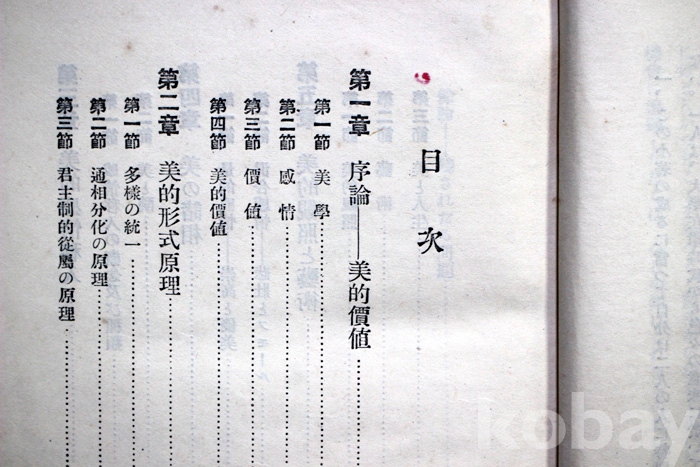 目次
第一章 序論――美的價値
第一節 美學
第二節 感情
第三節 價値
第四節 美的價値
第二章 美的形式原理
第一節 多樣の統一
第二節 通相分化の原理
第三節 君主制的從屬の原理
kobay